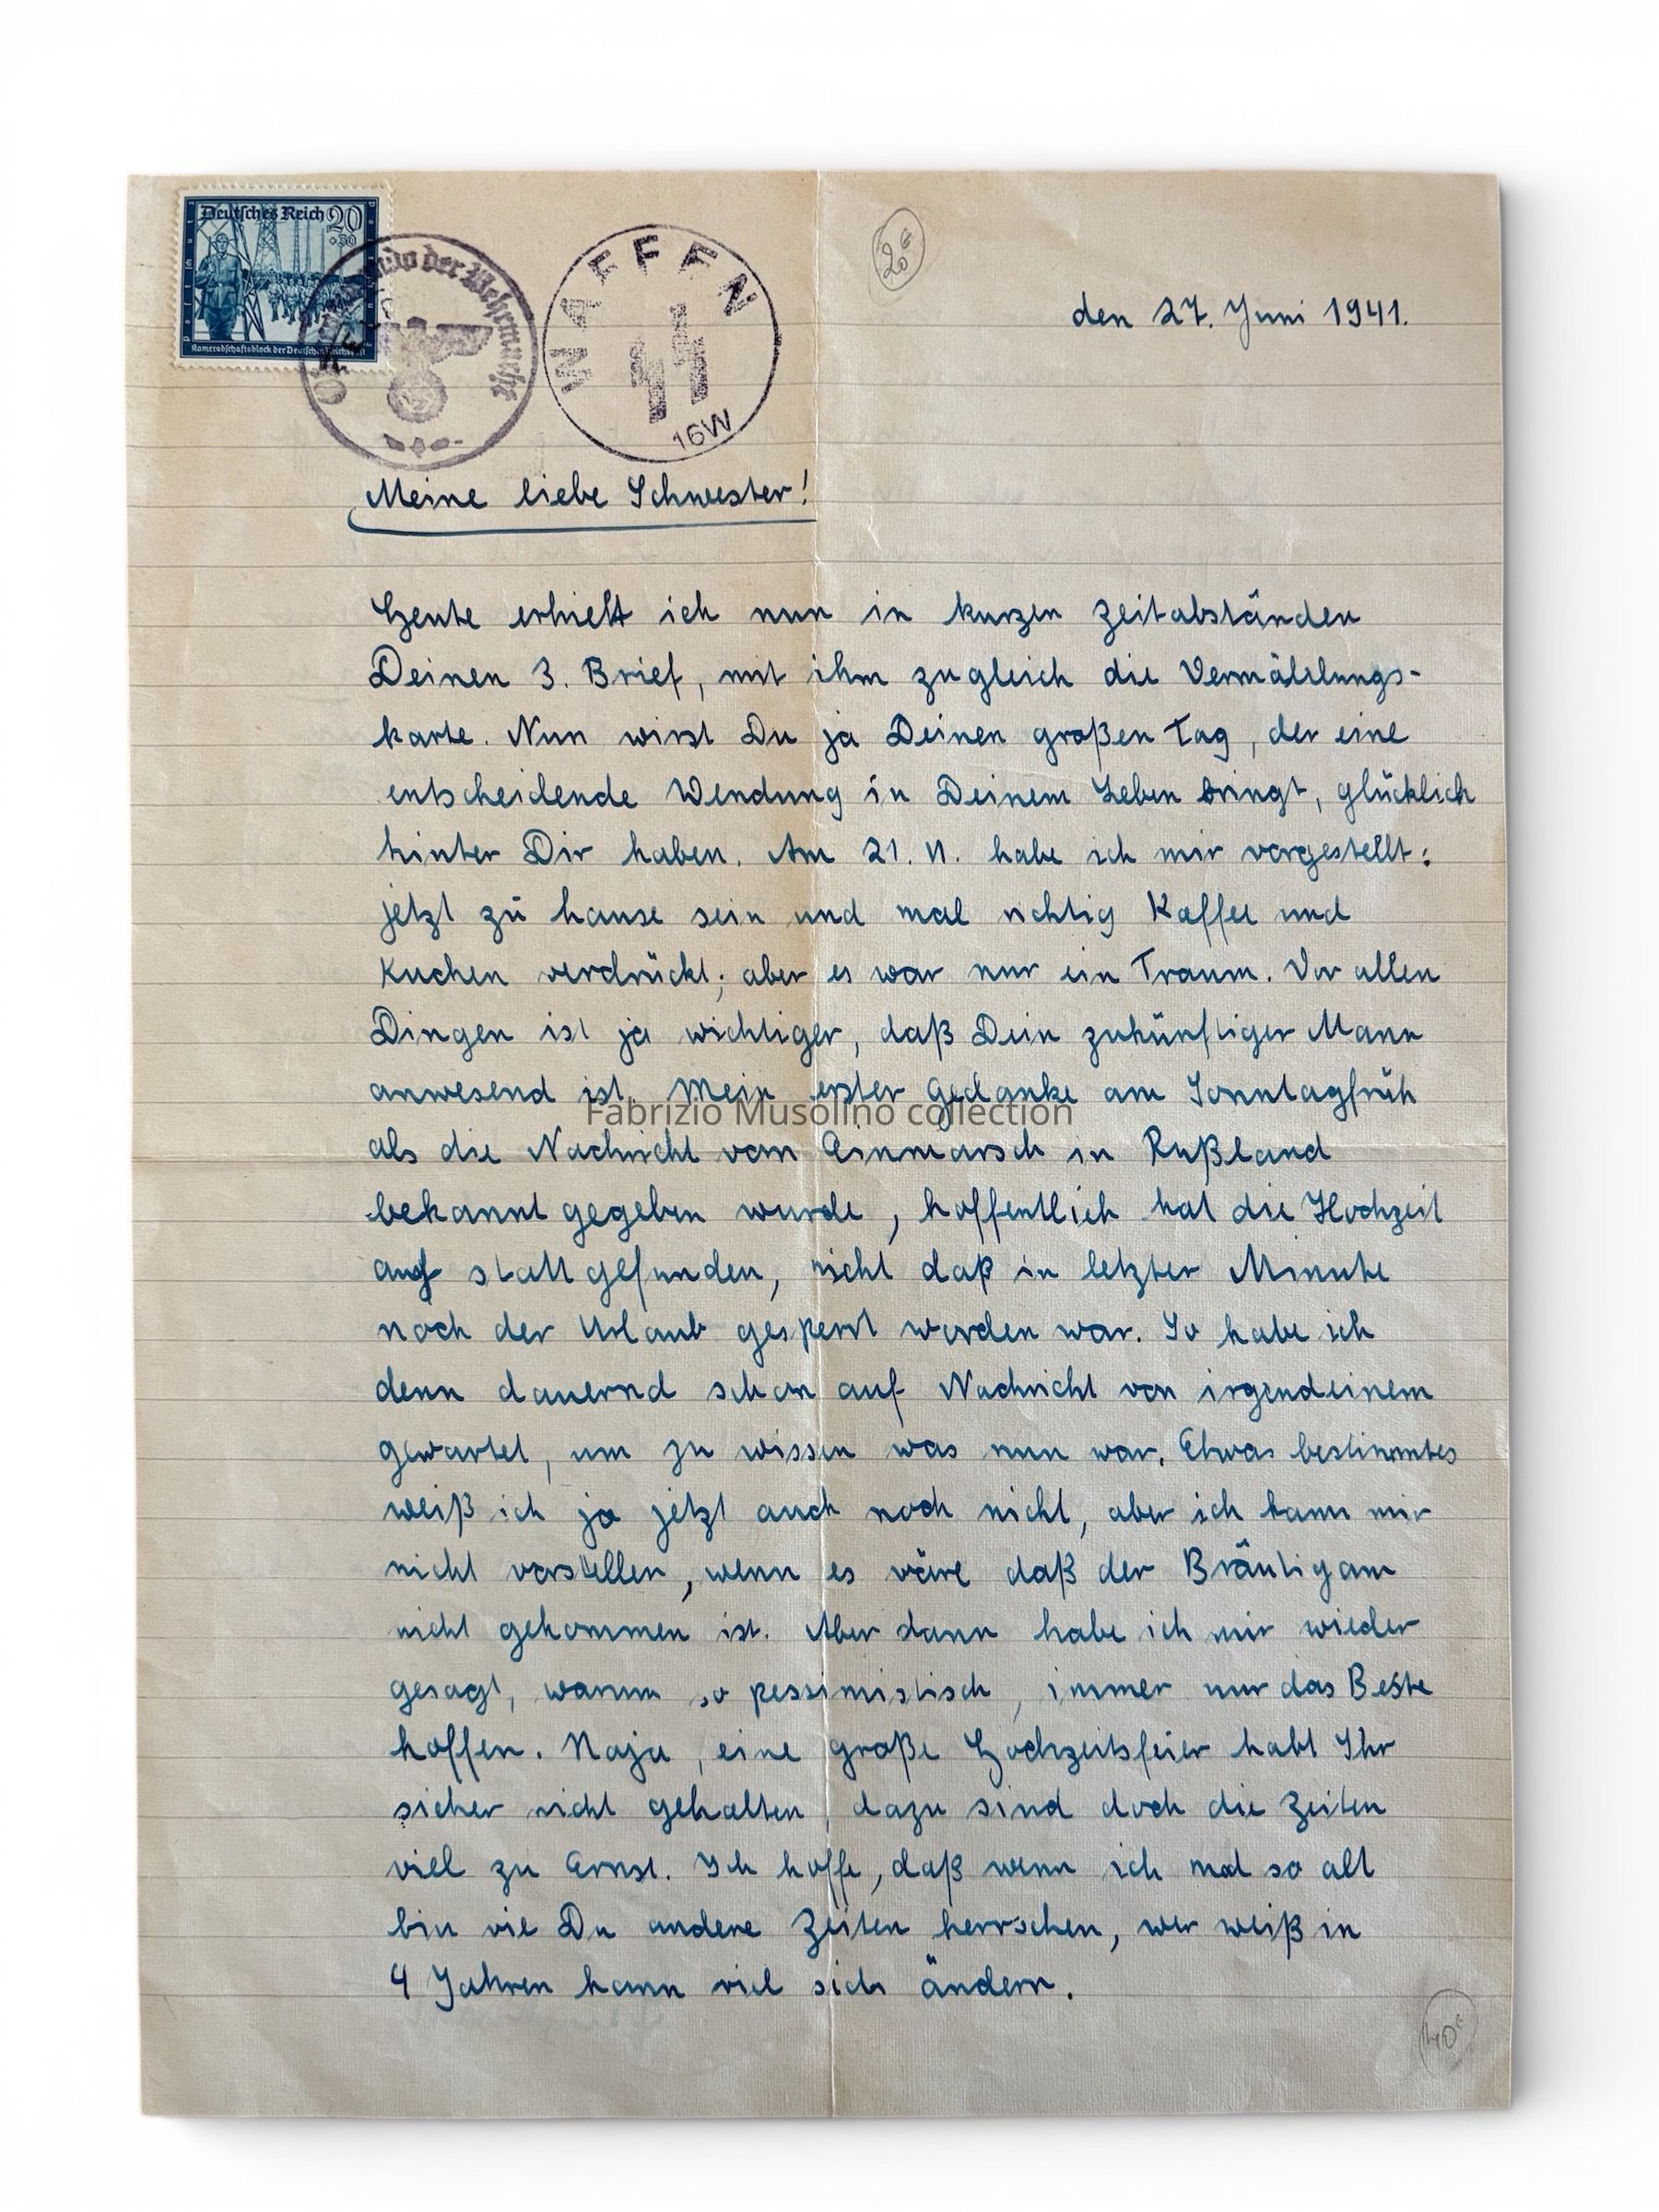 Deutsches Reich 20
+30
Kameradschaftsblock der Deutschen Reichspost
Oberkommando der Wehrmacht
WAFFEN
16W
20€
den 27. Juni 1941.
Meine liebe Schwester!
Heute erhielt ich nun in kurzen Zeitabständen
Deinen 3. Brief, mit ihm zugleich die Vermählungs-
karte. Nun wirst Du ja Deinen großen Tag, der eine
entscheidende Wendung in Deinem Leben bringt, glücklich
hinter Dir haben. Am 21. VI. habe ich mir vorgestellt:
jetzt zu hause sein und mal richtig Kaffee und
Kuchen verdrückt; aber es war nur ein Traum. Vor allen
Dingen ist ja wichtiger, daß Dein zukünftiger Mann
anwesend ist. Mein erster Gedanke am Sonntagfrüh
Fabrizio Musolino collection
als die Nachricht vom Einmarsch in Rußland
bekannt gegeben wurde, hoffentlich hat die Hochzeit
auf stattgefunden, nicht daß in letzter Minute
noch der Urlaub gesperrt worden war. So habe ich
denn dauernd schon auf Nachricht von irgendeinem
gewartet, um zu wissen was nun war. Etwas bestimmtes
weiß ich ja jetzt auch noch nicht, aber ich kann mir
nicht vorstellen, wenn es wäre daß der Bräutigam
nicht gekommen ist. Aber dann habe ich mir wieder
gesagt, warum so pessimistisch, immer nur das Beste
hoffen. Naja, eine große Hochzeitsfeier habt Ihr
sicher nicht gehalten, dazu sind doch die Zeiten
viel zu Ernst. Ich hoffe, daß wenn ich mal so alt
bin wie Du andere Zeiten herrschen, wer weiß in
4 Jahren kann viel sich ändern.
40€